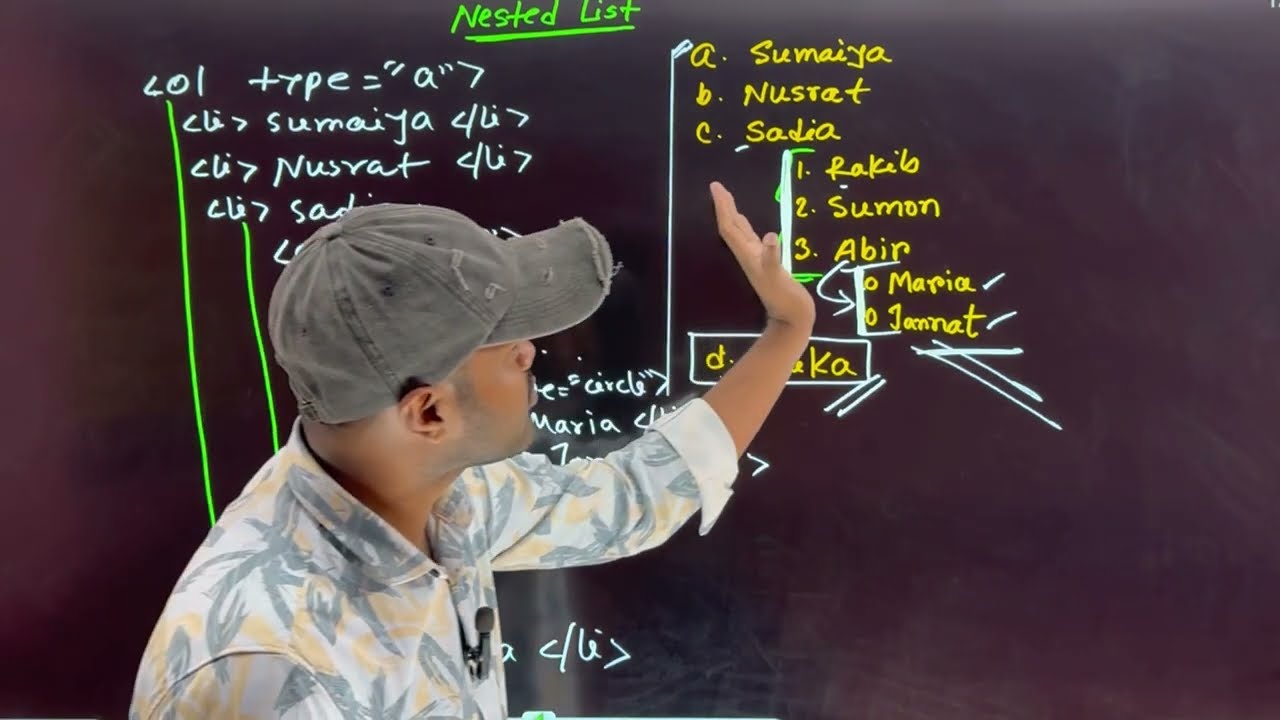 Nested List
<ol type="a">
<li> Sumaiya </li>
<li> Nusrat </li>
<li> sad
="circle">
Maria </li
>
a </li>
a. Sumaiya
b. Nusrat
c. Sadia
1. Rakib
2. Sumon
3. Abir
o Maria
o Jannat
d. ka